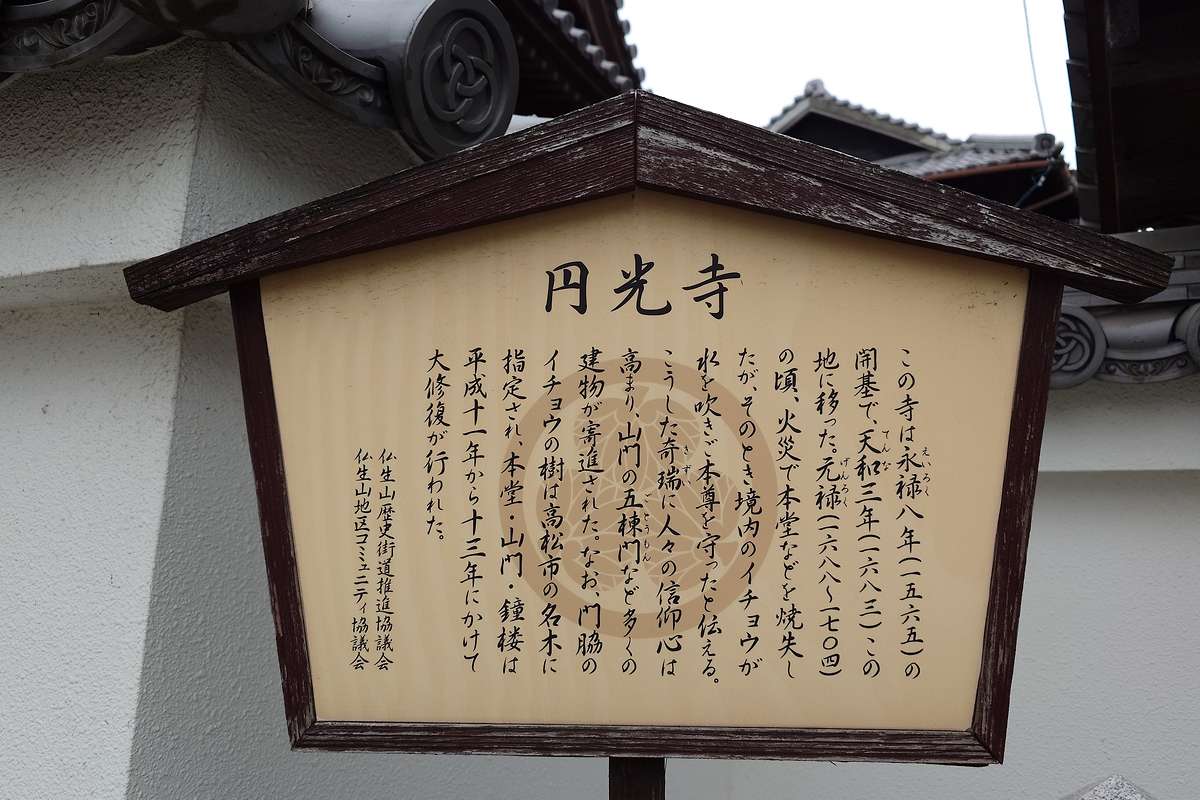 円光寺
この寺は永禄八年(一五六五)の
えいろく
開基で、天和三年(一六八三)この
てんな
地に移った。元禄(一六八八～一七〇四)
げんろく
の頃、火災で本堂などを焼失し
たが、そのとき境内のイチョウが
水を吹きご本尊を守ったと伝える。
こうした奇瑞に人々の信仰心は
きずい
高まり、山門の五棟門など多くの
ごとうもん
建物が寄進された。なお、門脇の
イチョウの樹は高松市の名木に
指定され、本堂・山門・鐘楼は
平成十一年から十三年にかけて
大修復が行われた。
仏生山歴史街道推進協議会
仏生山地区コミュニティ協議会